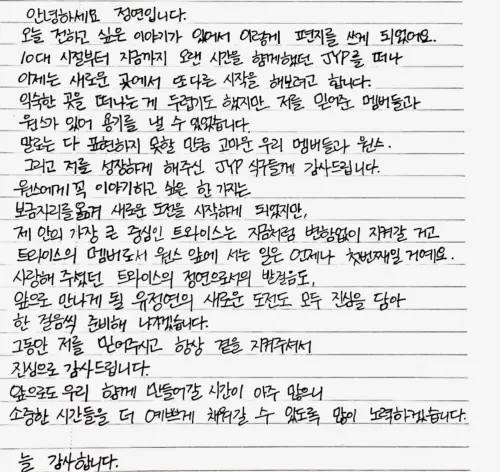 안녕하세요 정연입니다.
오늘 전하고 싶은 이야기가 있어서 이렇게 편지를 쓰게 되었어요.
10대 시절부터 지금까지 오랜 시간을 함께했던 JYP를 떠나
이제는 새로운 곳에서 또 다른 시작을 해보려고 합니다.
익숙한 곳을 떠나는 게 두렵기도 했지만 저를 믿어준 멤버들과
원스가 있어 용기를 낼 수 있었습니다.
말로는 다 표현하지 못할 만큼 고마운 우리 멤버들과 원스.
그리고 저를 성장하게 해주신 JYP 식구들께 감사드립니다.
원스에게 꼭 이야기하고 싶은 한 가지는
보금자리를 옮겨 새로운 도전을 시작하게 되었지만,
제 안의 가장 큰 중심인 트와이스는 지금처럼 변함없이 지켜갈 거고
트와이스의 멤버로서 원스 앞에 서는 일은 언제나 첫번째일 거예요.
사랑해 주셨던 트와이스의 정연으로서의 발걸음도,
앞으로 만나게 될 유정연의 새로운 도전도 모두 진심을 담아
한 걸음씩 준비해 나가겠습니다.
그동안 저를 믿어주시고 항상 곁을 지켜주셔서
진심으로 감사드립니다.
앞으로도 우리 함께 만들어갈 시간이 아주 많으니
소중한 시간들을 더 예쁘게 채워갈 수 있도록 많이 노력하겠습니다.
늘 감사합니다.